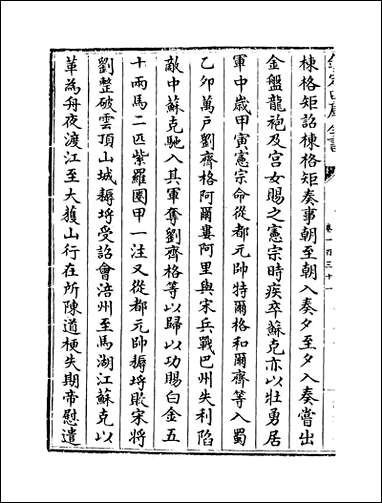 欽定四庫全書
卷一百三十一
棟格矩詔棟格矩奏事朝至朝入奏夕至夕入奏嘗出
金盤龍袍及宫女賜之憲宗時疾卒蘇克亦以壮勇居
軍中歳甲寅憲宗命從都元帥特爾格和爾齊等入蜀
乙卯萬戸劉齊格阿爾婁阿里與宋兵戰巴州失利陷
敵中蘇克馳入其軍奪劉齊格等以歸以功賜白金五
十兩馬二匹紫羅圏甲一注又從都元帥耨埒敗宋將
劉整破雲頂山城耨埒受詔會涪州至馬湖江蘇克以
革為舟夜渡江至大獲山行在所陳道梗失期帝慰遣